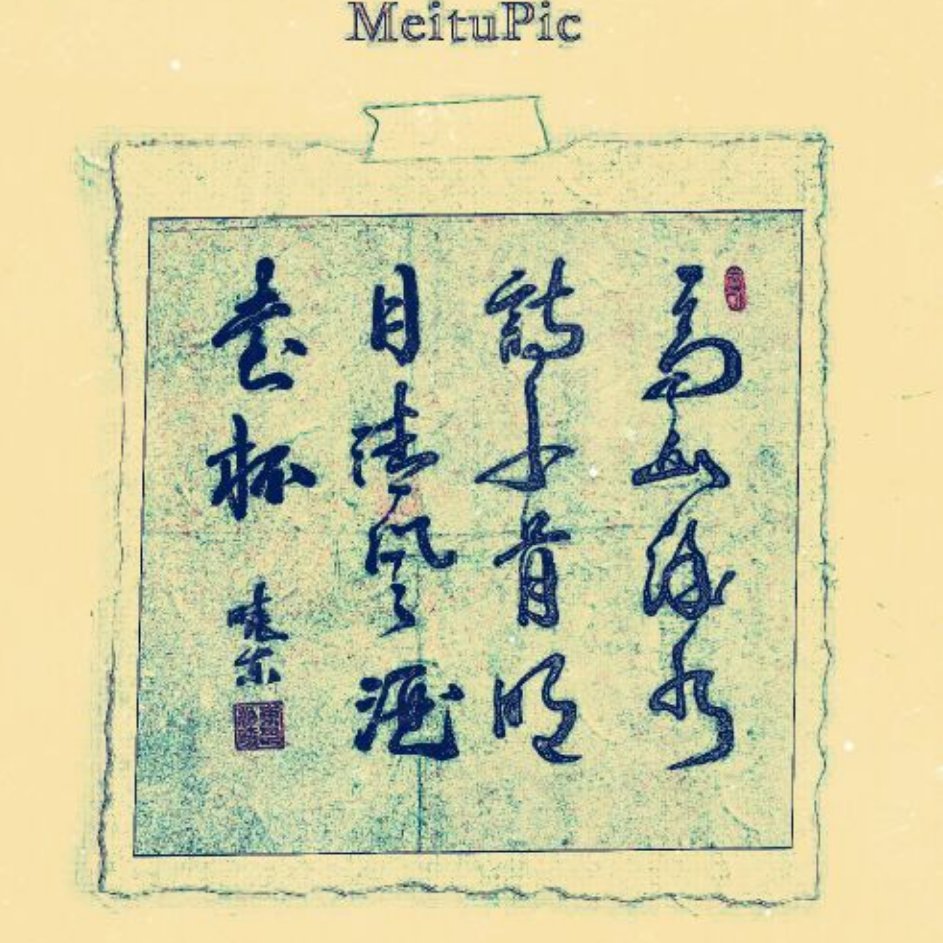 MeituPic
高山流水
詩千首明
月清風酒
壹杯